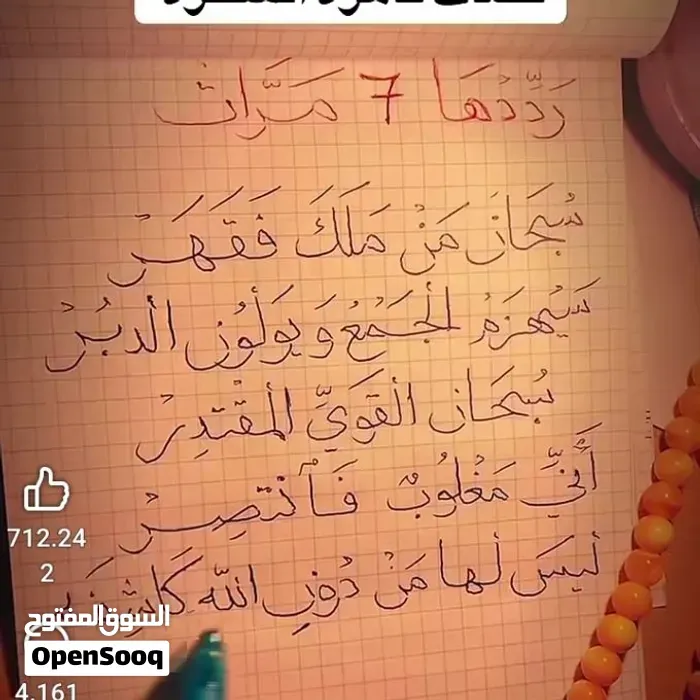 رَدِّدْهَا 7 مَرَّاتْ
سُبْحَانَ مَنْ مَلَكَ فَقَهَرْ
سَيُهْزَمُ الْجَمْعُ وَيُوَلُّونَ الْدُبُرْ
سُبْحَانَ الْقَوَيِّ الْمُقْتَدِرْ
أَنِّي مَغْلُوبٌ فَأَنْتَصِرْ
لَيْسَ لَهَا مَنْ دُونِ اللّه
712.24
2
السوق المفتوح
OpenSooq
4,161